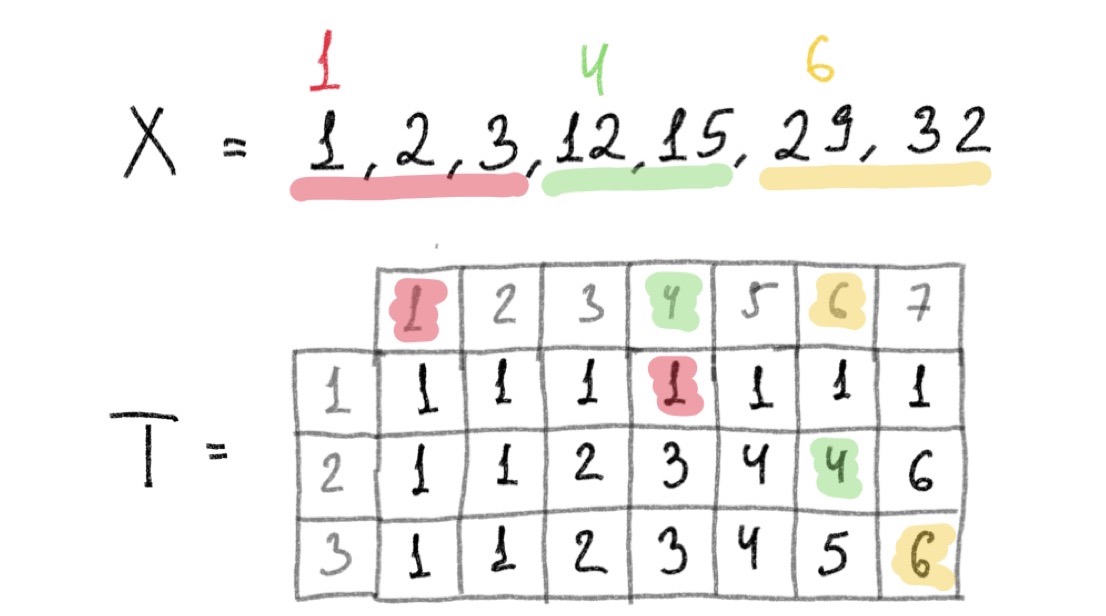 1 4 6
X = 1, 2, 3, 12, 15, 29, 32
1 2 3 4 5 6 7
1 1 1 1 1 1 1 1
T =
2 1 1 2 3 4 4 6
3 1 1 2 3 4 5 6